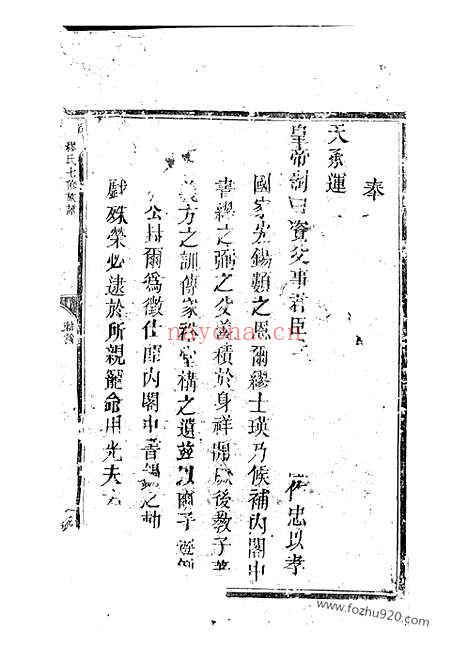 奉
天承運
皇帝制曰資父事君臣 作忠以孝
國家宏錫類之恩爾繆士瑛乃候補內閣中
書繆之弼之父善積於身祥開 後教子著
義方之訓傳家裕堂構之遺茲以爾子遵例
公封爾為徵仕郎內閣中書錫之勅
戲殊榮必逮於所親寵命用光夫
繆氏七修族譜
miyona.cn
www.fozhu920.com